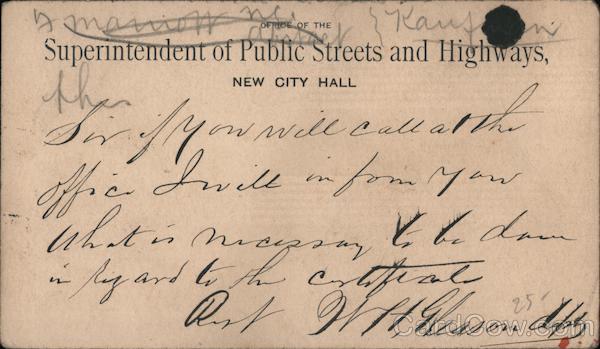 Kaufman
OFFICE OF THE
Superintendent of Public Streets and Highways,
NEW CITY HALL
Sir if You will call at the
office I will in form You
What is necessary to be done
in regard to the certificate
Rest W H
25
CardCow.com